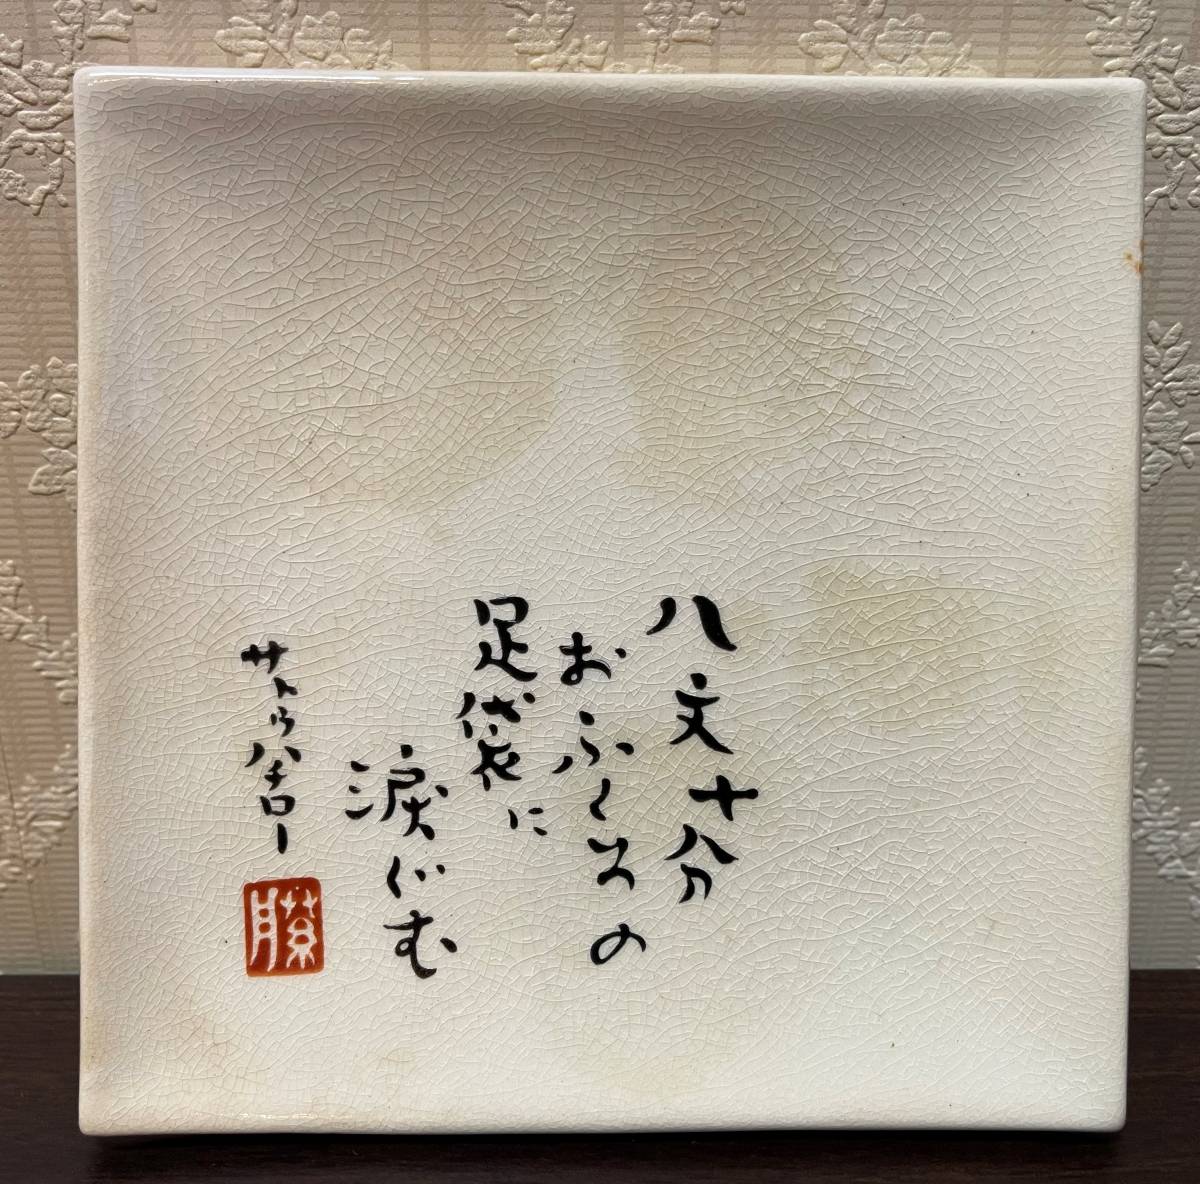 八文十分
おふくろの
足袋に
涙ぐむ
サトウハチロー